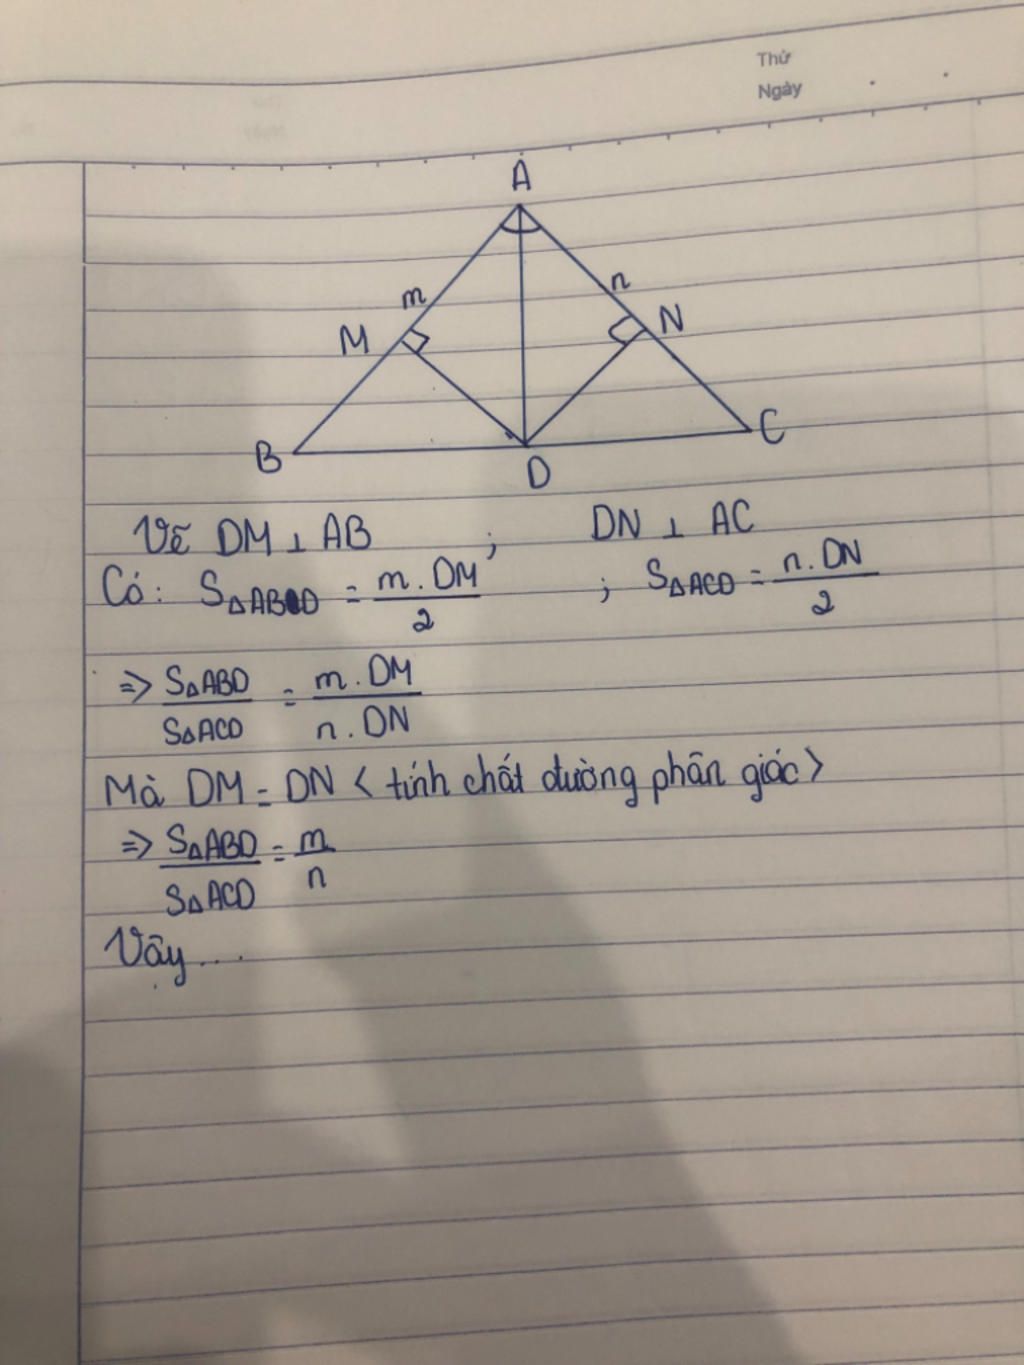 Thứ
Ngày
A
m
n
M
N
B
C
D
Vẽ DM ⊥ AB ; DN ⊥ AC
Có: S△ABD = m.DM/2 ; S△ACD = n.DN/2
=> S△ABD/S△ACD = m.DM/n.DN
Mà DM = DN < tính chất đường phân giác >
=> S△ABD/S△ACD = m/n
Vậy...